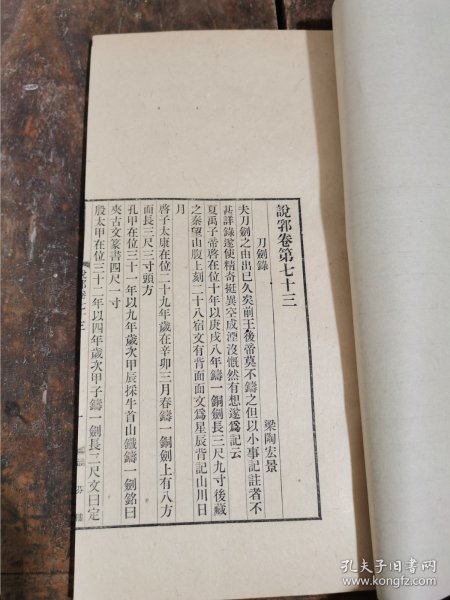 說郛卷第七十三
刀劍錄
梁陶宏景
夫刀劍之由出已久矣前王後帝莫不鑄之但以小事記註者不
甚詳錄遂使精奇挺異空成湮沒慨然有想遂為記云
夏禹子帝啓在位十年以庚戌八年鑄一銅劍長三尺九寸後藏
之秦望山腹上刻二十八宿文有背面面文為星辰背記山川日
月
啓子太康在位二十九年歲在辛卯三月春鑄一銅劍上有八方
面長三尺三寸頭方
孔甲在位三十一年以九年歲次甲辰採牛首山鐵鑄一劍銘曰
夾古文篆書四尺一寸
殷太甲在位三十二年以四年歲次甲子鑄一劍長二尺文曰定
說郛卷七十三
一
孔夫子旧书网
www.kongfz.com